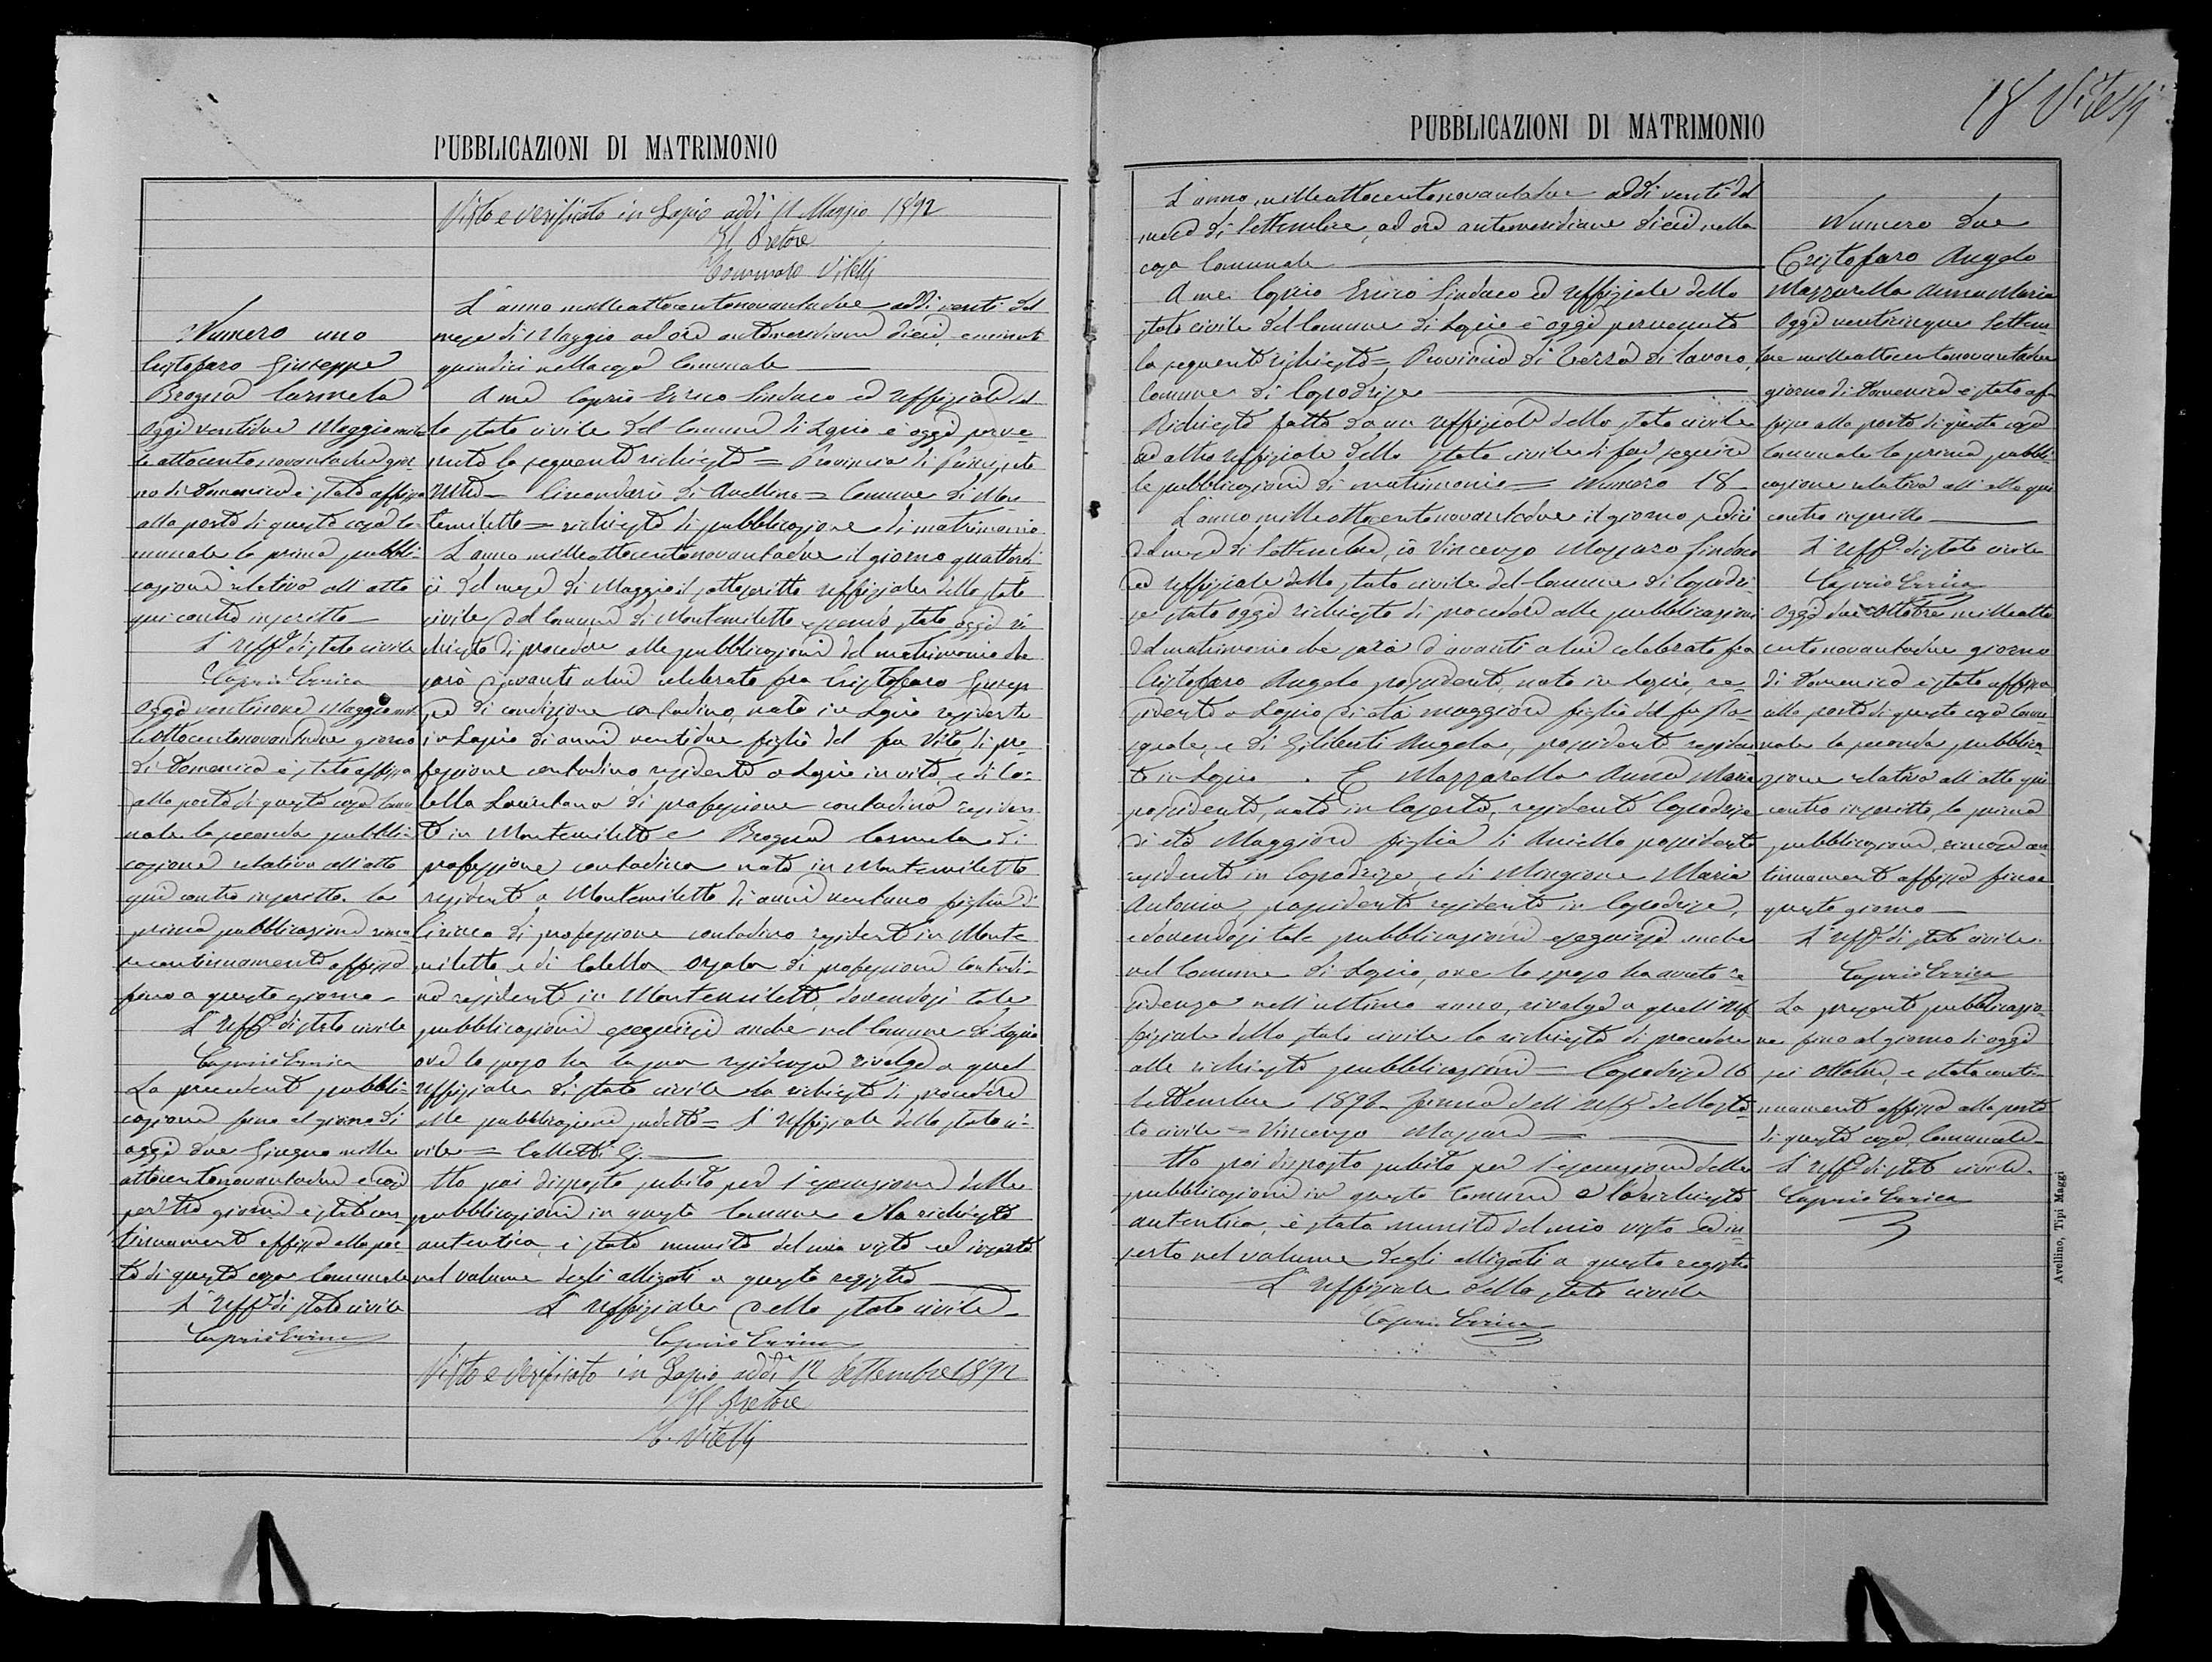 PUBBLICAZIONI DI MATRIMONIO
Visto e verificato in Lapio addì 11 Maggio 1892
Il Pretore
Tommaso Vitelli
Numero uno
Cristofaro Giuseppe
Brogna Carmela
Oggi ventidue Maggio mil
le ottocentonovantadue gior
no di Domenica è stata affissa
alla porta di questa casa Co
munale la prima pubbli
cazione relativa all'atto
qui contro inscritto
L'Uff.e di stato civile
Caprio Enrico
Oggi ventinove Maggio mil
leottocentonovantadue giorno
di Domenica è stata affissa
alla porta di questa casa Comu
nale la seconda pubbli
cazione relativa all'atto
qui contro inscritto. la
prima pubblicazione rima
se continuamente affissa
fino a questo giorno
L'Uff.e di stato civile
Caprio Enrico
La precedente pubbli
cazione fino al giorno di
oggi due Giugno mille
ottocentonovantadue e così
per tre giorni è stata con
tinuamente affissa alla por
ta di questa casa Comunale
L'Uff.e di stato civile
Caprio Enrico
L'anno milleottocentonovantadue addì venti del
mese di Maggio ad ore antimeridiane dieci e minuti
quindici nella casa Comunale
A me Caprio Enrico Sindaco ed Uffiziale del
lo stato civile del Comune di Lapio è oggi perve
nuta la seguente richiesta = Provincia di Principato
Ultra = Circondario di Avellino = Comune di Mon
temiletto = richiesta di pubblicazione di matrimonio
L'anno milleottocentonovantadue il giorno quattordi
ci del mese di Maggio il sottoscritto uffiziale dello stato
civile del Comune di Montemiletto essendo stato oggi ri
chiesto di procedere alle pubblicazioni del matrimonio che
sarà davanti a lui celebrato fra Cristofaro Giusep
pe di condizione contadino, nato in Lapio residente
in Lapio di anni ventidue figlio del fu Vito, di pro
fessione contadino residente a Lapio in vita, e di Co
lella Loretana di professione contadina residen
te in Montemiletto e Brogna Carmela di
professione contadina nata in Montemiletto
residente a Montemiletto di anni ventuno figlia di
Ciriaco di professione contadino residente in Monte
miletto e di Colella Orsola di professione contadi
na residente in Montemiletto, dovendosi tale
pubblicazioni eseguirsi anche nel Comune di Lapio
ove lo sposo ha la sua residenza rivolge a quel
Uffiziale di stato civile la richiesta di procedere
alle pubblicazioni sudette = L'Uffiziale dello stato ci
vile = Colletti G.
Ho poi disposto subito per l'esecuzione delle
pubblicazioni in questo Comune e la richiesta
autentica, è stata munita del mio visto ed inserta
nel volume degli alligati a questo registro
L'Uffiziale dello stato civile
Caprio Enrico
Visto e verificato in Lapio addì 12 Settembre 1892
Il Pretore
T. Vitelli
18 Vitelli
PUBBLICAZIONI DI MATRIMONIO
L'anno milleottocentonovantadue addì venti del
mese di Settembre, ad ore antimeridiane dieci nella
casa Comunale
A me Caprio Enrico Sindaco ed Uffiziale dello
stato civile del Comune di Lapio è oggi pervenuta
la seguente richiesta = Provincia di Terra di Lavoro,
Comune di Capodrise
Richiesta fatta da un Uffiziale dello stato civile
ad altro uffiziale dello stato civile di far seguire
le pubblicazioni di matrimonio = Numero 18
L'anno milleottocentonovantadue il giorno sedici
del mese di Settembre, io Vincenzo Mazzaro Sindaco
ed Uffiziale dello stato civile del Comune di Capodri
se stato oggi richiesto di procedere alle pubblicazioni
del matrimonio che sarà davanti a lui celebrato fra
Cristofaro Angelo possidente, nato in Lapio, re
sidente a Lapio di età maggiore figlio del fu Pa
squale, e di Giliberti Angela, possidente residen
te in Lapio. E Mazzarella Anna Maria
possidente, nata in Caserta, residente Capodrise
di età Maggiore figlia di Aniello possidente
residente in Capodrise e di Mongione Maria
Antonia, possidente residente in Capodrise,
e dovendosi tale pubblicazioni eseguirsi anche
nel Comune di Lapio, ove lo sposo ha avuto re
sidenza nell'ultimo anno, rivolge a quell'Uf
fiziale dello stato civile la richiesta di procedere
alle richieste pubblicazioni = Capodrise 16
Settembre 1892. firma dell'Uff.e dello sta
to civile = Vincenzo Mazzaro =
Ho poi disposto subito per l'esecuzione delle
pubblicazioni in questo Comune e la richiesta
autentica, è stata munita del mio visto ed in
serta nel volume degli alligati a questo registro
L'Uffiziale dello stato civile
Caprio Enrico
Numero due
Cristofaro Angelo
Mazzarella Anna Maria
Oggi venticinque Settem
bre milleottocentonovantadue
giorno di Domenica è stata af
fissa alla porta di questa casa
Comunale la prima pubbli
cazione relativa all'atto qui
contro inscritto
L'Uff.e di stato civile
Caprio Enrico
Oggi due Ottobre milleotto
centonovantadue giorno
di Domenica è stata affissa
alla porta di questa casa Comu
nale la seconda pubblica
zione relativa all'atto qui
contro inscritto, la prima
pubblicazione, rimase con
tinuamente affissa fino a
questo giorno
L'Uff.e di stato civile
Caprio Enrico
La presente pubblicazio
ne fino al giorno di oggi
sei Ottobre, è stata conti
nuamente affissa alla porta
di questa casa Comunale
L'Uff.e di stato civile
Caprio Enrico
Avellino, Tipi Maggi